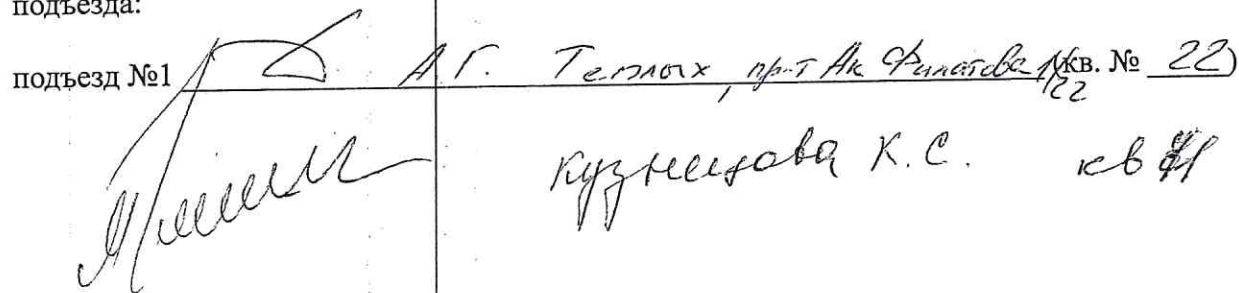 подъезда:
подъезд №1 А.Г. Теплых, пр-т Ак Филатова 1/22 (кв. № 22)
Кузнецова К.С. кв